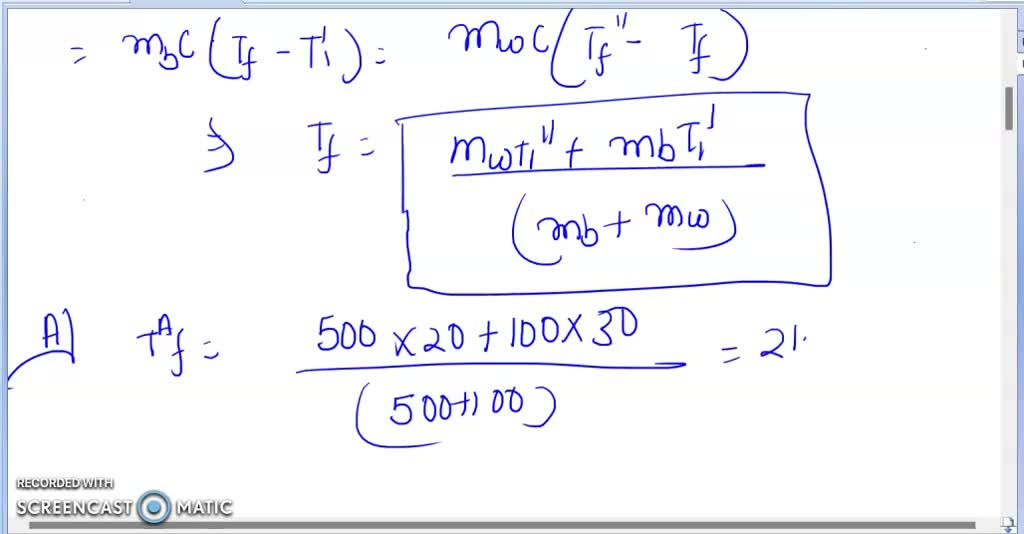 = mbC (Tf - T1') = mωC (Tf'' - Tf)
⇒ Tf = mωT1'' + mbT1'
(mb + mω)
A) T^A f = 500 × 20 + 100 × 30 = 21.
(500+100)
RECORDED WITH
SCREENCAST MATIC